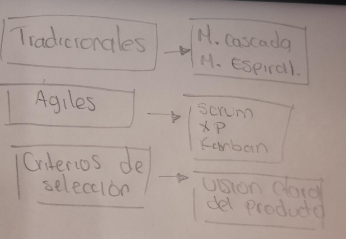 Tradicionales
M. Cascada
M. Espiral.
Agiles
Scrum
XP
Kanban
Criterios de
selección
Visión Clara
del producto